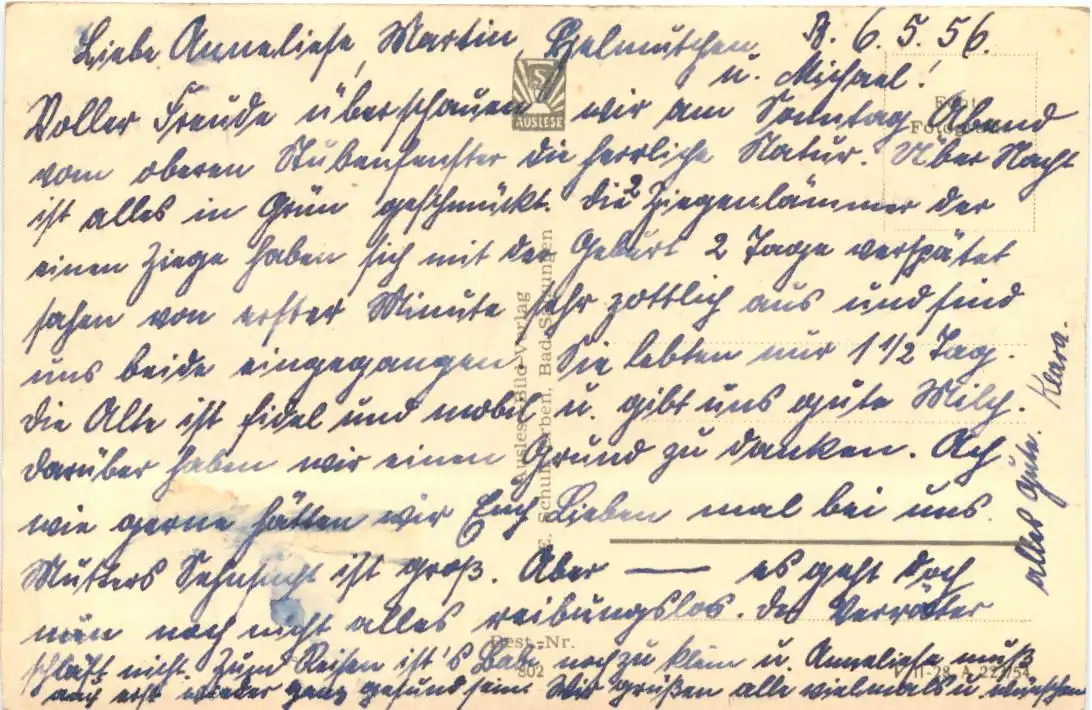 R. 6.5.56.
Liebe Anneliese, Martin, Helmutchen
u. Michael!
Voller Freude überschauen wir am Sonntag Abend
vom oberen Stubenfenster die herrliche Natur. Über Nacht
ist alles in Grün geschmückt. Die 2 Ziegenlämmer der
einen Ziege haben sich mit der Geburt 2 Tage verspätet
sahen von erster Minute sehr zottlich aus und sind
uns beide eingegangen. Sie lebten nur 1 1/2 Tag.
Die Alte ist fidel und mobil u. gibt uns gute Milch.
Darüber haben wir einen Grund zu danken. Ach
wie gerne hätten wir Euch Lieben mal bei uns.
Mutters Sehnsucht ist groß. Aber — es geht doch
nun noch nicht alles reibungslos. Der Verräter
schläft nicht. Zum Reisen ist's Baby noch zu klein u. Anneliese muß
auch erst wieder ganz gesund sein. Wir grüßen alle vielmals u. wünschen
alles Gute. Klara.
AUSLESE
Echt
Foto
Auslese-Bild-Verlag
Bad Salzungen
Best.-Nr.
802